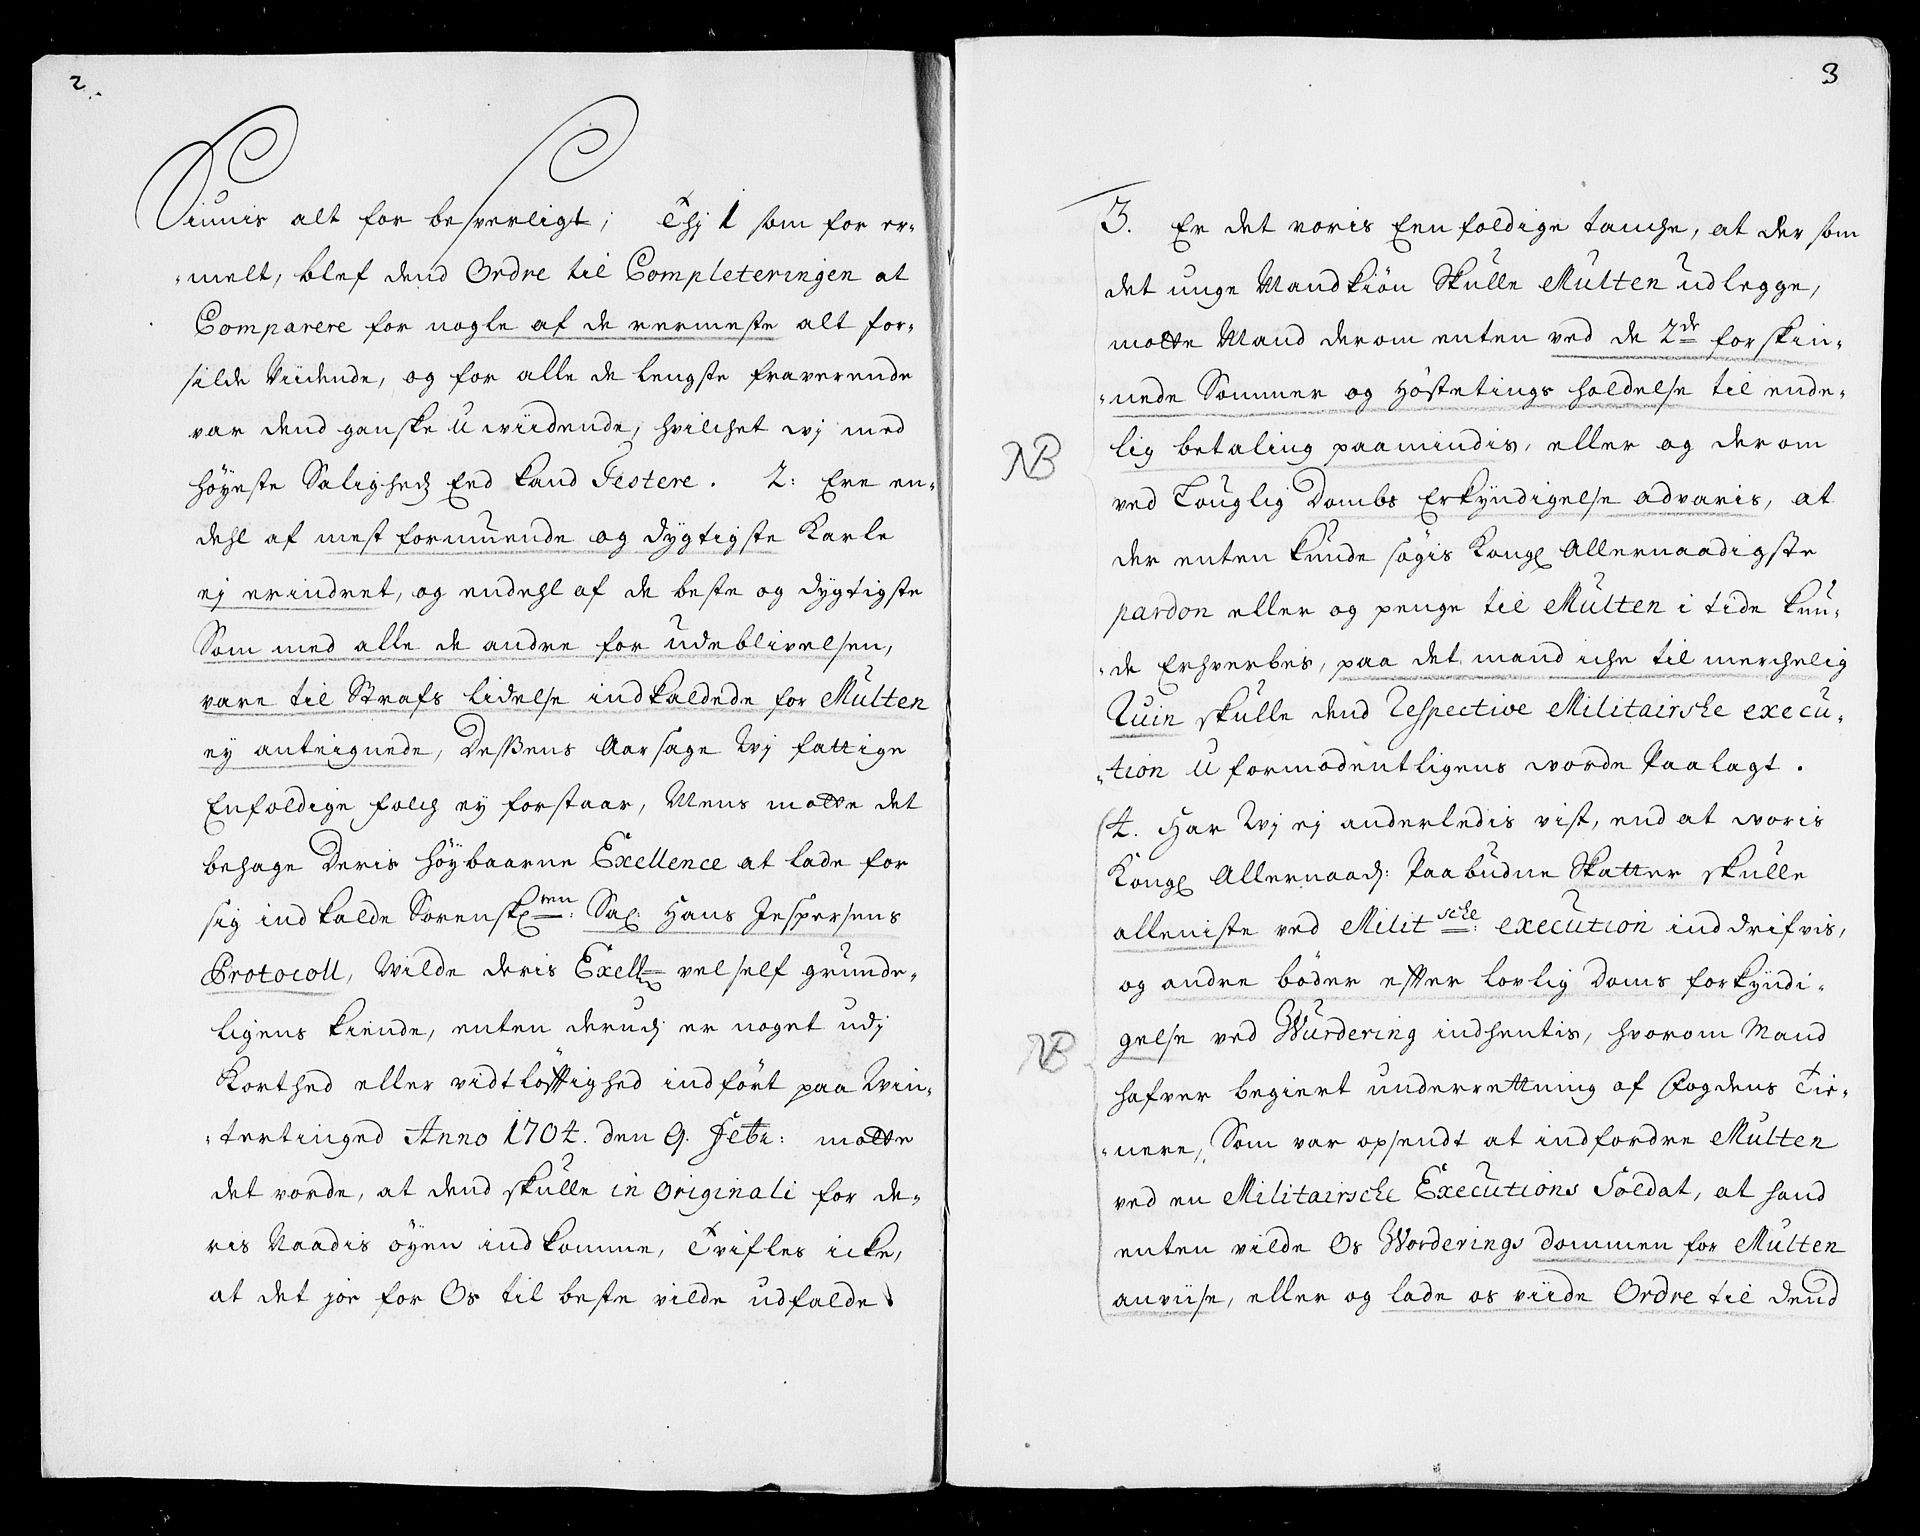 2.
Siunis alt for besverligt; Thj 1 som for er-
melt, blef dend Ordre til Completeringen at
Comparere for nogle af de nermeste alt for-
silde Viidende, og for alle de lengste fraverende
var dend ganske U wiidende, hvilchet wj med
höyeste Saligheds Eed kand Testere. 2: Ere en-
dehl af mest formuende og dygtigste Karle
ej erindret, og endehl af de beste og dygtigste
Som med alle de andre for udeblivelsen,
vare til Strafs lidelse indkaldede for Multen
ey anteignede, Desßens Aarsage Wj fattige
Enfoldige folch ey forstaar, Mens motte det
behage Deris Höybaarne Exellence at lade for
sig indkalde Sorenskr:ren Sal: Hans Jespersens
Protocoll, Wilde deris Exell: vel self grunde-
ligens kiende, enten derudj er noget udj
Korthed eller vidtlöfftighed indfört paa Win-
tertinged Anno 1704. den 9. Febr: motte
det vorde, at dend skulle in Originali for de-
ris Naadis öyen indkomme, Tvifles icke,
at det jor for Os til beste vilde udfalde.
3
3. Er det voris Eenfoldige tanche, at der som
det unge Mandkiön Skulle Multen udlegge,
motte Mand derom enten ved de 2de forskin-
nede Sommer og Höstetings holdelse til ende-
lig betaling paamindis, eller og derom
NB
ved Louglig Dombs Erkyndigelse advaris, at
der enten kunde sögis Kongl Allernaadigste
pardon eller og penge til Multen i tide kun-
de Erhverbes, paa det mand iche til merchelig
Ruin skulle dend Respective Militairske execu-
tion U formodentligens worde Paalagt.
4. Har Wj ej anderledis vist, end at woris
Kongl Allernaad: Paabudne Skatter skulle
alleniste ved Milit:sche execution inddrifvis,
og andre böder efter lovlig Doms forkyndi-
gelse ved Wurdering indhentis, hvorom Mand
NB
hafver begiert underrettning af Fogdens Tie-
nere, Som var opsendt at indfordre Multen
ved en Militairsche Executions Soldat, at hand
enten vilde Os Worderings dommen for Multen
anviise, eller og lade os viide Ordre til dend